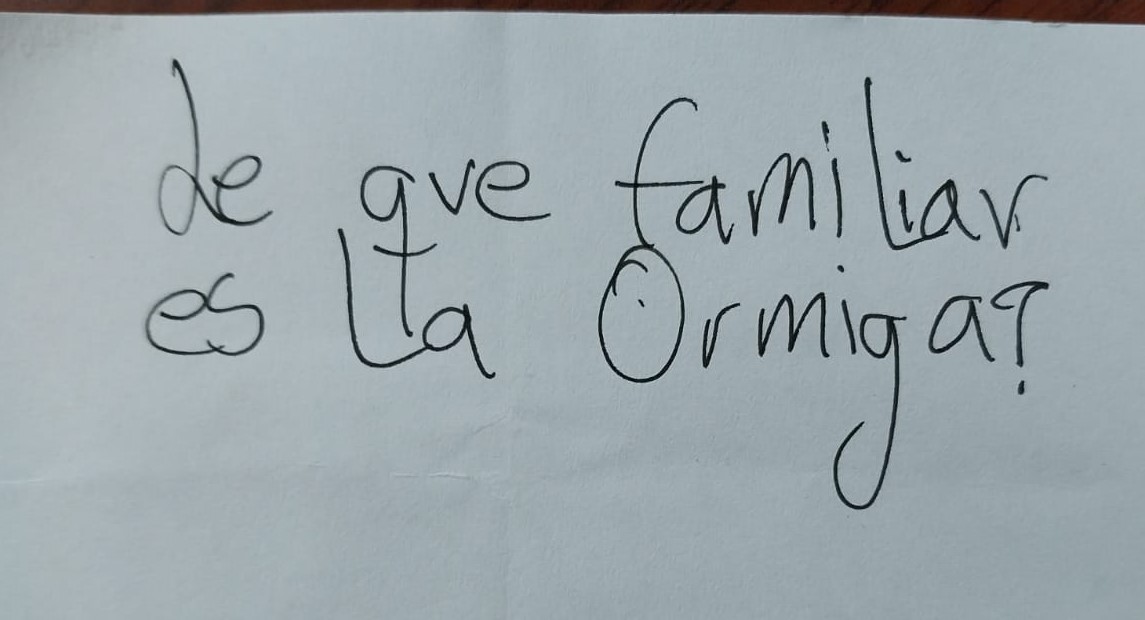 de que familiar
es la Ormiga?